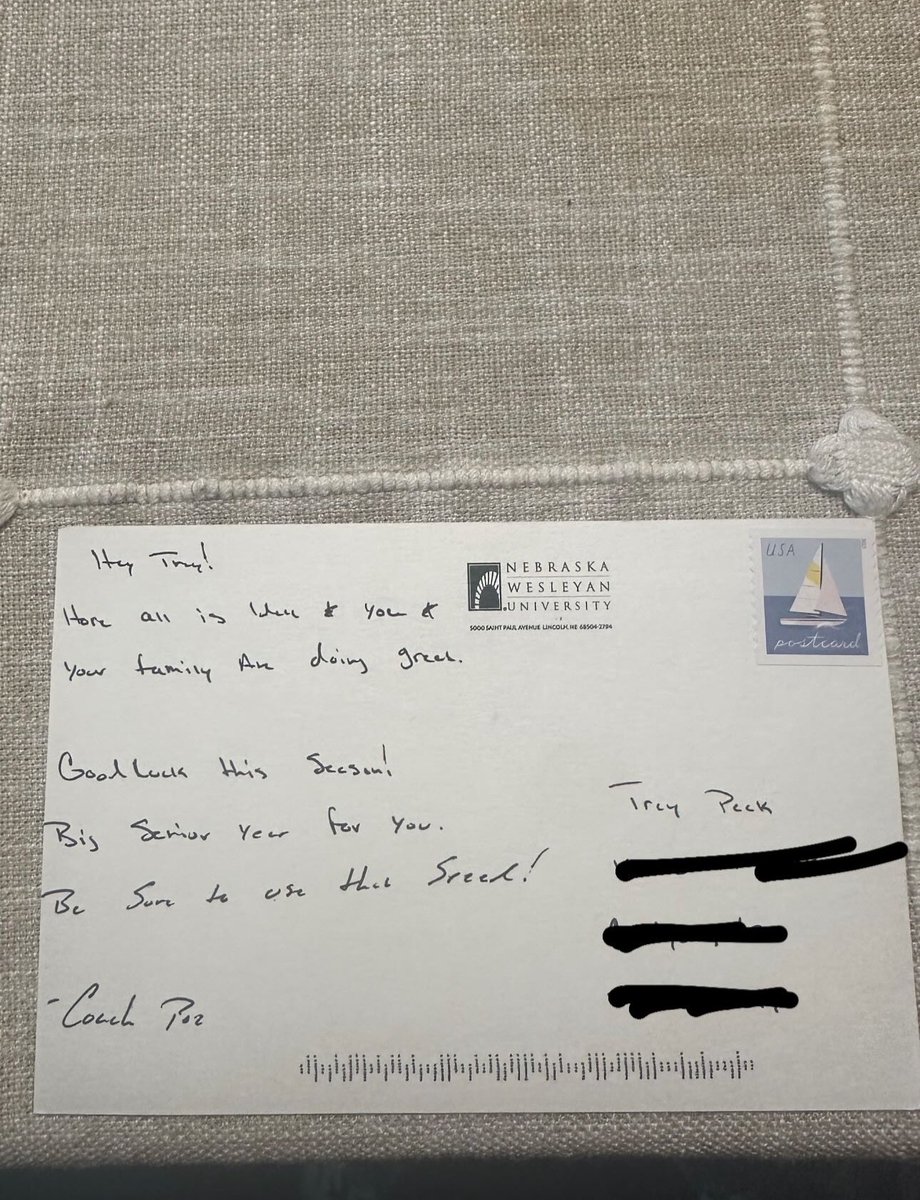 Hey Trey!
Hope all is well & you &
your family are doing great.
Good luck this Season!
Big Senior year for you.
Be Sure to use that Speed!
-Coach Poz
NEBRASKA
WESLEYAN
UNIVERSITY
5000 SAINT PAUL AVENUE LINCOLN, NE 68504-2794
USA
postcard
Trey Peck